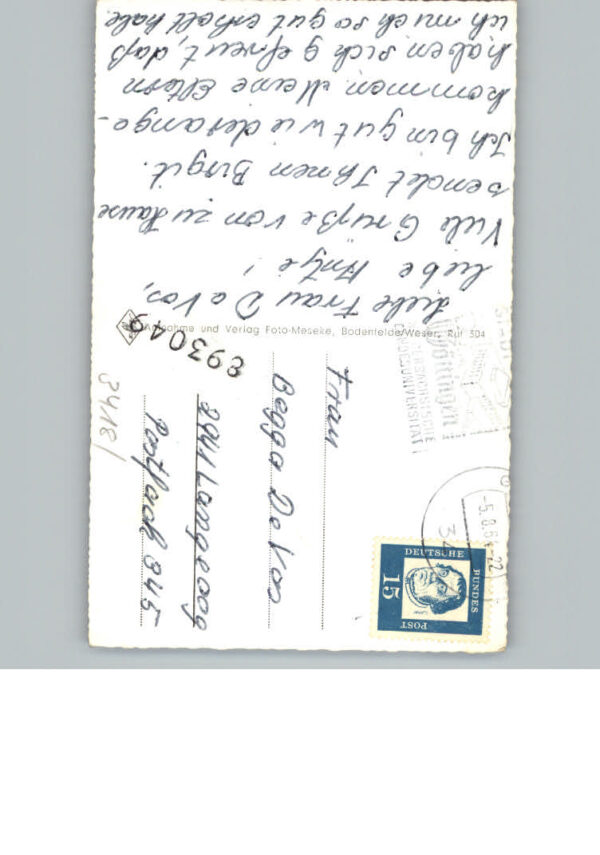 Liebe Frau De Vos,
liebe Antje!
Viele Grüße von zu Hause
sendet Ihnen Birgit.
Ich bin gut wiederange-
kommen. Meine Eltern
haben sich gefreut, daß
ich mich so gut erholt habe.
Aufnahme und Verlag Foto-Meseke, Bodenfelde/Weser, Ruf 304
893049
3418/
Frau
Begga De Vos
2941 Langeoog
Postfach 345
GÖTTINGEN
UNIVERSITÄT
-5.8.6
22
34
DEUTSCHE
BUNDES
POST
15